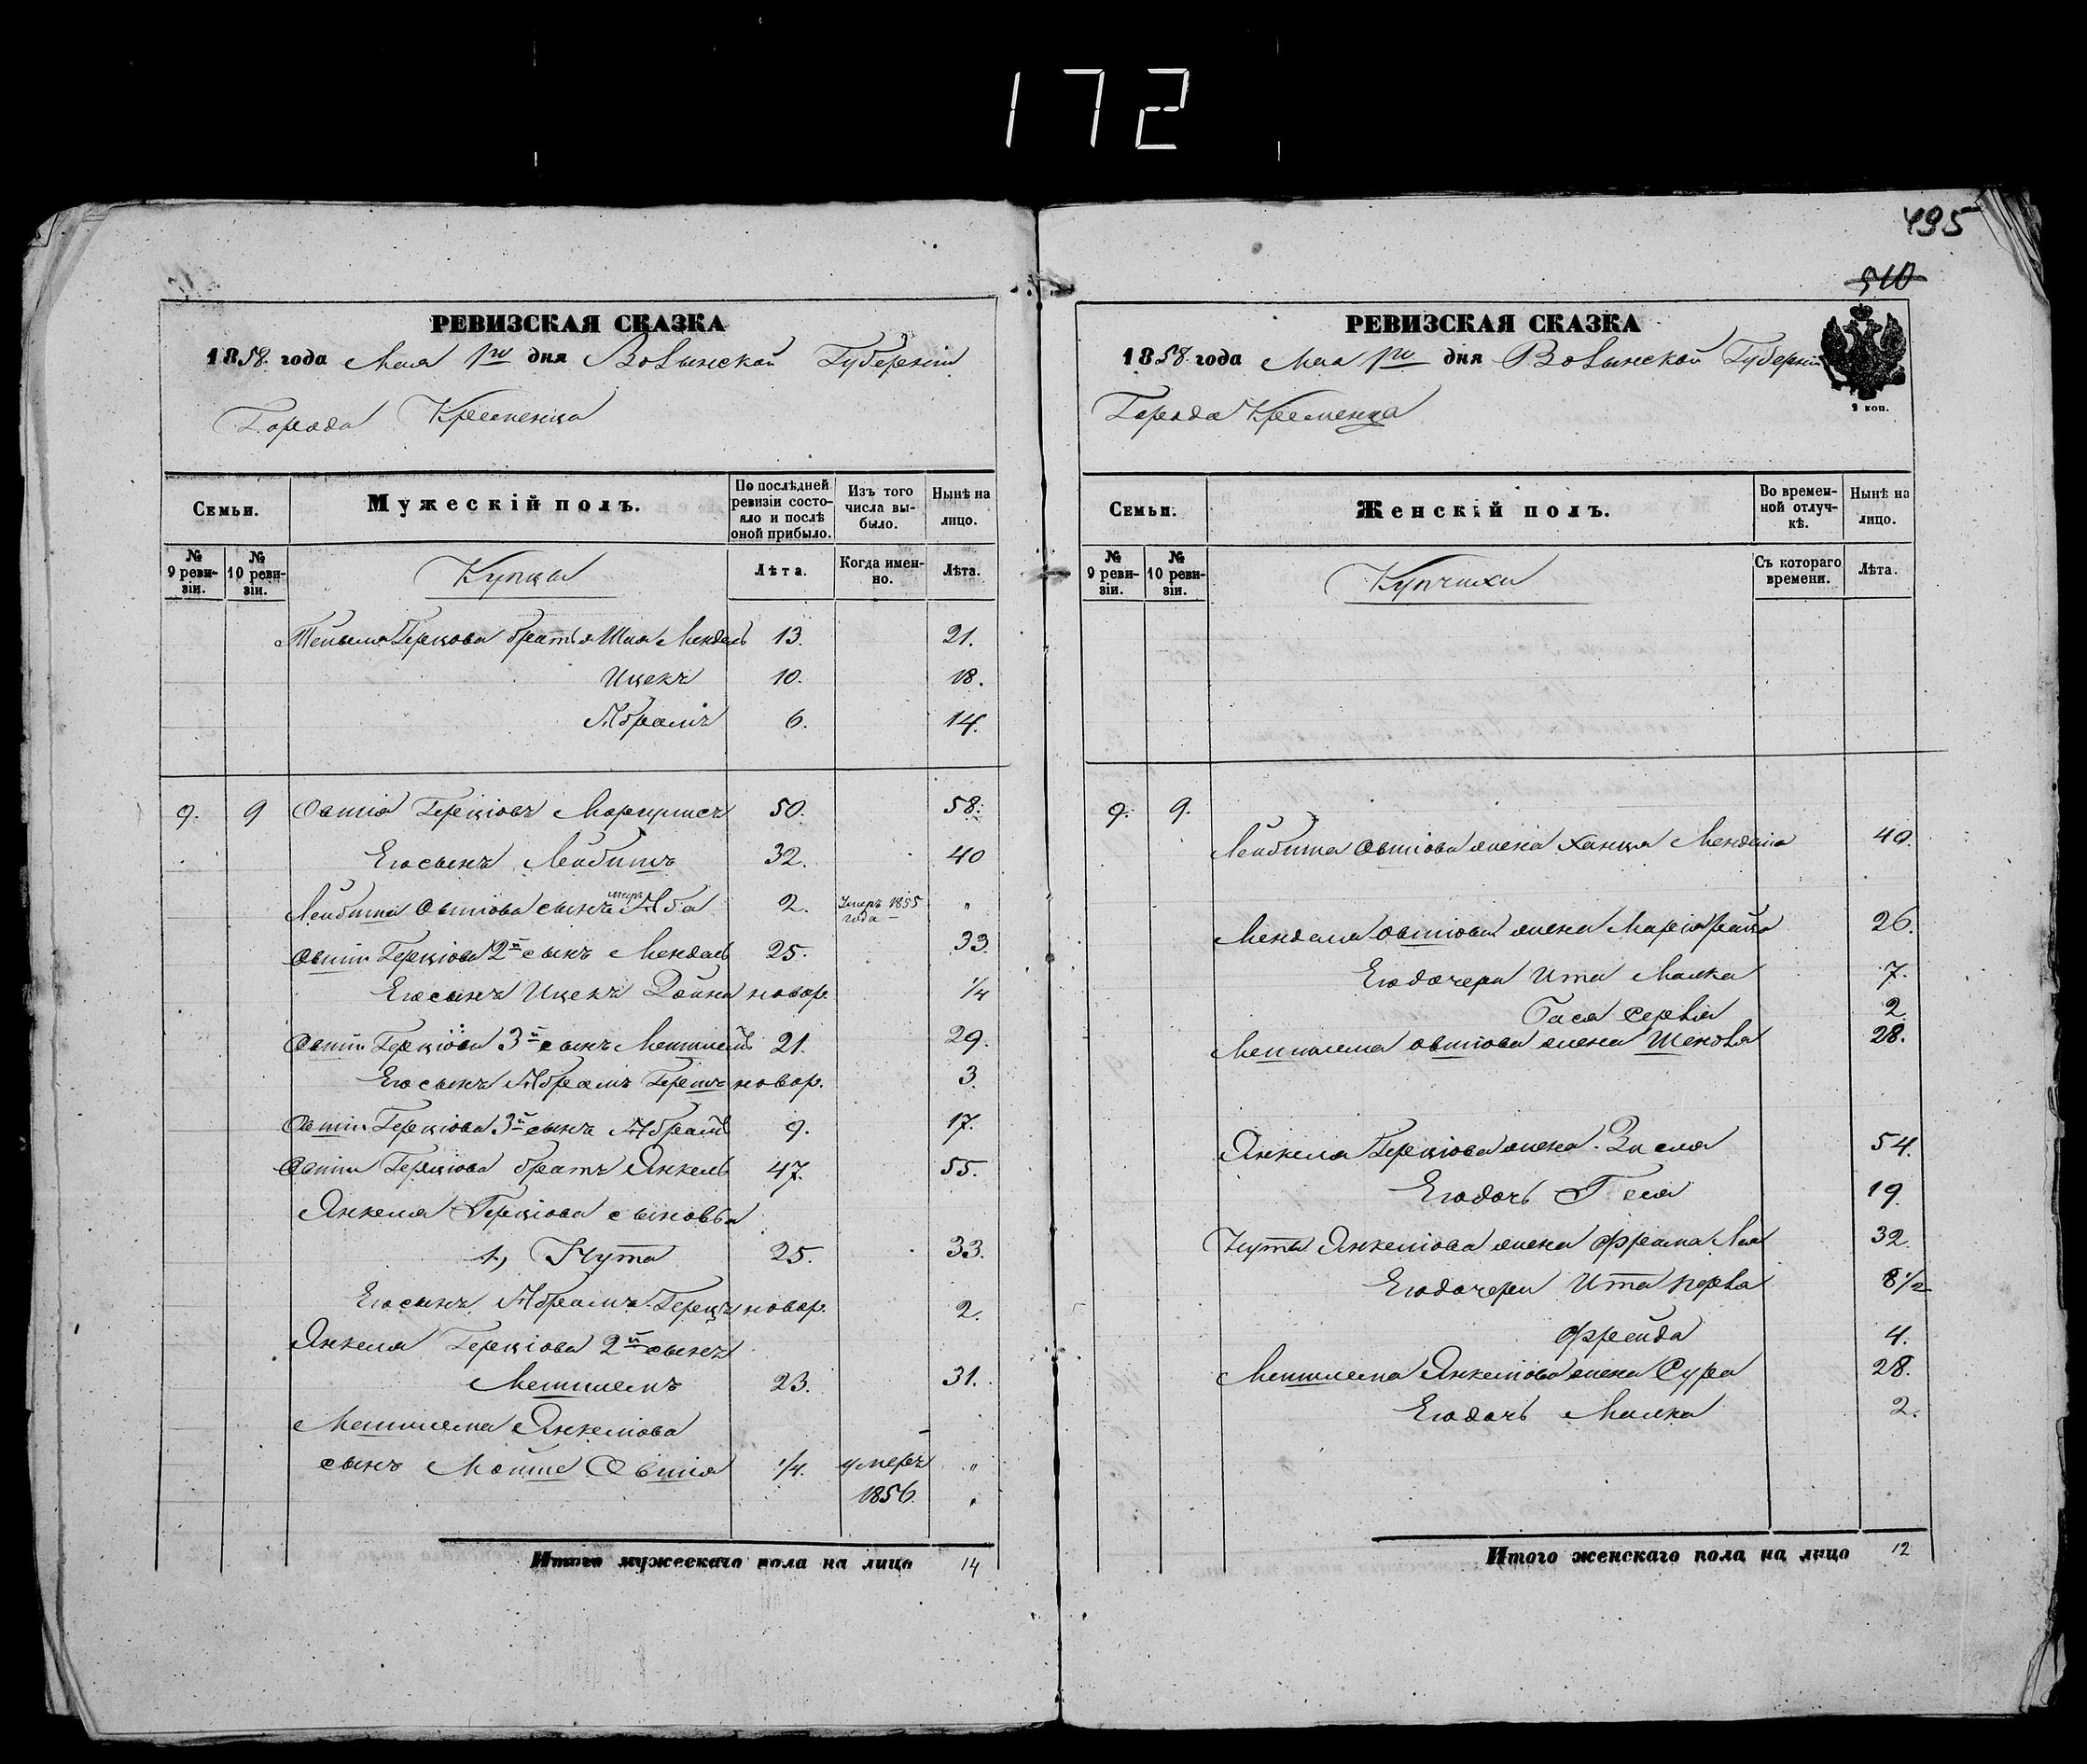 172
495
510
РЕВИЗСКАЯ СКАЗКА
1858. года Мая 1го дня Волынской Губерніи
Города Кременца
Семьи.
Мужескій полъ.
По послѣдней ревизіи состояло и послѣ оной прибыло.
Изъ того числа выбыло.
Нынѣ на лицо.
№ 9 ревизіи.
№ 10 ревизіи.
Купцы
Лѣта.
Когда именно.
Лѣта.
Герцова братья Шая Мендель 13. 21.
Ицекъ 10. 18.
Абрамъ 6. 14.
9. 9 Овшія Герціовъ Маргулисъ 50. 58.
Его сынъ Лейбишъ 32. 40
Лейбиша Овшіова сынъ Аба 2. Умеръ 1855 года — "
Овшіи Герціова 2й сынъ Мендель 25. 33
Его сынъ Ицекъ Дойна новор. 1/4
Овшіи Герціова 3й сынъ Мешилемъ 21. 29.
Его сынъ Абрамъ Герцъ новор. 3.
Овшіи Герціова 3й сынъ Абрамъ 9. 17.
Овшіи Герціова братъ Янкель 47. 55.
Янкеля Герціова сыновья
1, Нута 25. 33.
Его сынъ Абрамъ Герцъ новор. 2.
Янкеля Герціова 2й сынъ
Мешилемъ 23. 31.
Мешилема Янкеліова
сынъ Мойше Овшія 1/4. умеръ "
1856. "
Итого мужескаго пола на лицо 14
РЕВИЗСКАЯ СКАЗКА
1858. года Мая 1го дня Волынской Губерніи
Города Кременца
2 коп.
Семьи.
Женскій полъ.
Во временной отлучкѣ.
Нынѣ на лицо.
№ 9 ревизіи.
№ 10 ревизіи.
Купчихи
Съ котораго времени.
Лѣта.
9. 9.
Лейбиша Овшіова жена Ханця Мендля 40.
Менделя Овшіова жена 26.
Его дочери Ита Малка 7.
Бася Серля 2
Мешилема Овшіова жена Шендля 28.
Янкеля Герціова жена Зисля 54.
Его дочь 19.
Нуты Янкеліова жена Фрама Лея 32.
Его дочери Ита Перля 8 1/2
Фрейда 4.
Мешилема Янкеліова жена Сура 28.
Его дочь Малка 2.
Итого женскаго пола на лицо 12